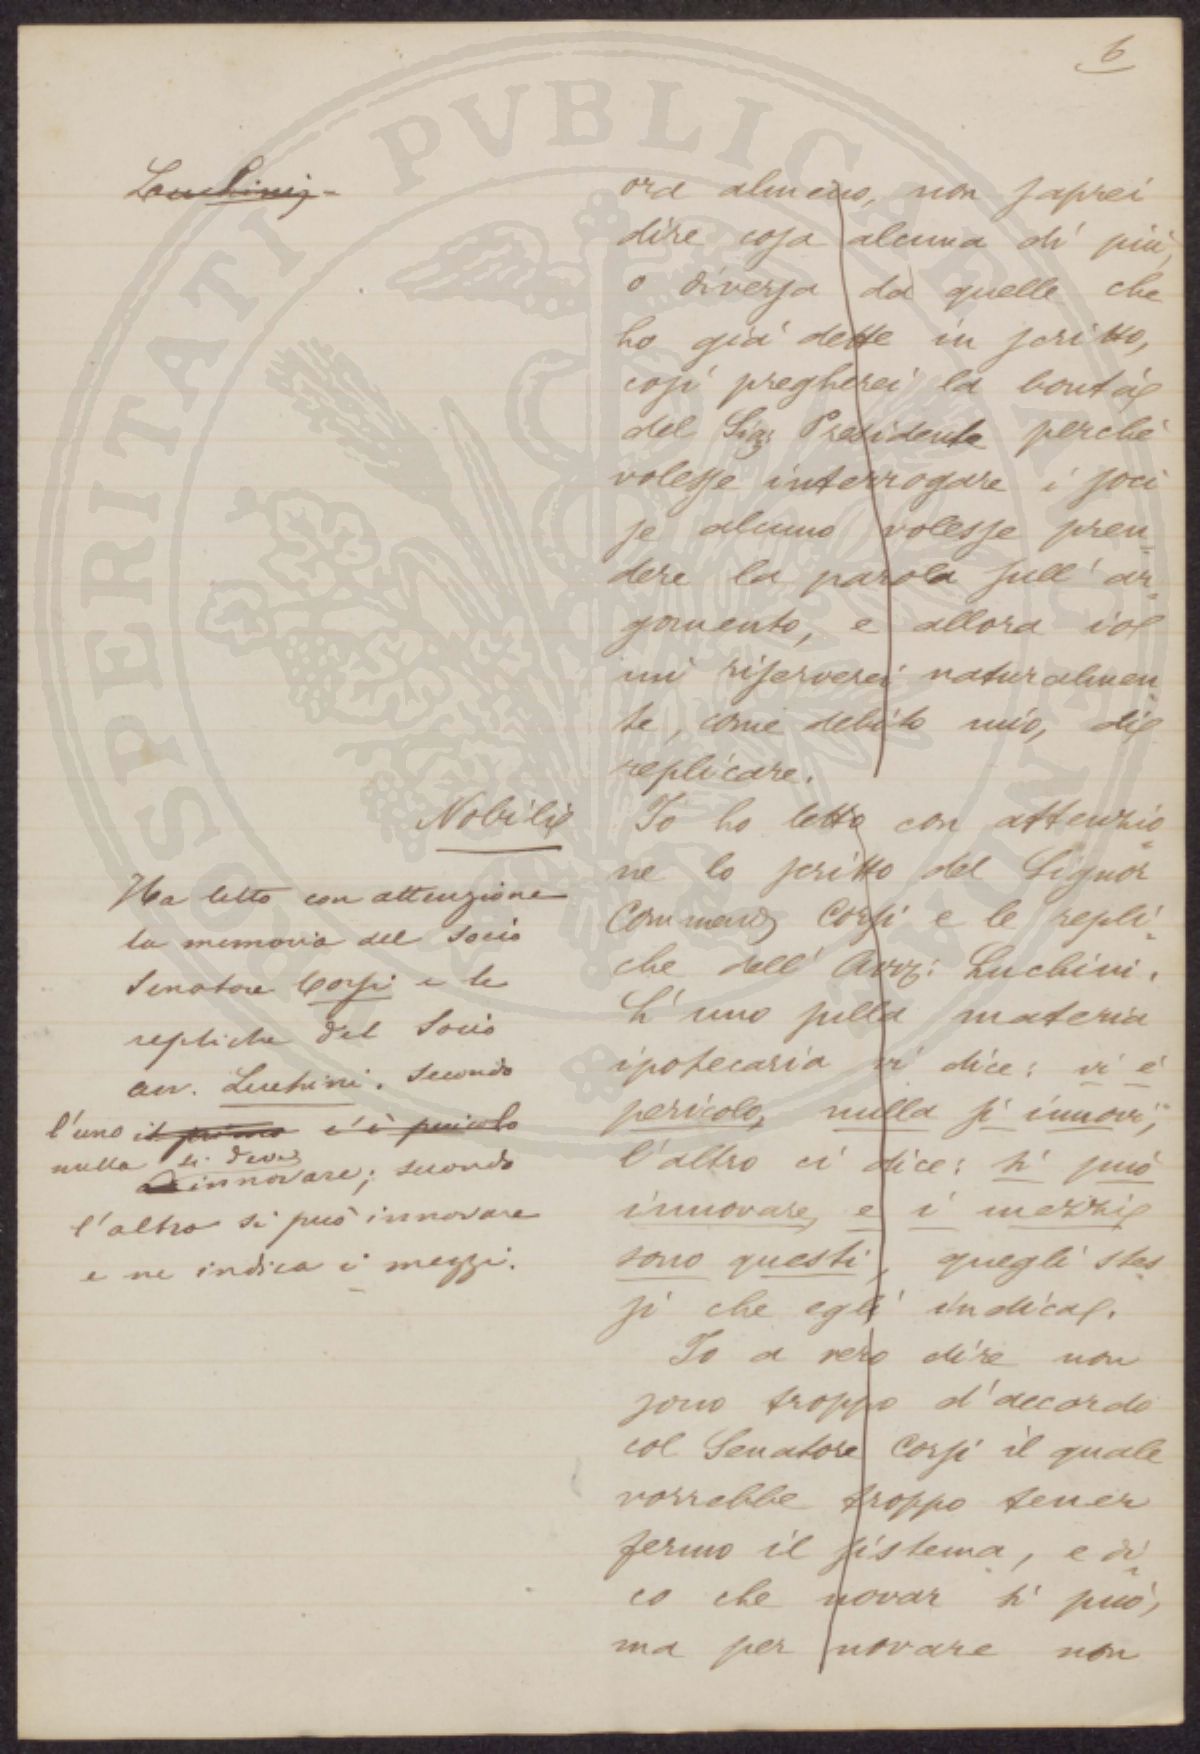 6
Lucchini
ora almeno, non saprei
dire cosa alcuna di più,
o diversa da quelle che
ho già dette in scritto,
così pregherei la bontà
del Sig. Presidente perchè
volesse interrogare i soci
se alcuno volesse pren
dere la parola sull'ar
gomento, e allora io
mi riserverei naturalmen
te, come debito mio, di
replicare.
Nobili
Io ho letto con attenzio
ne lo scritto del Signor
Commend Corsi e le repli
che dell'Avv: Luchini.
L'uno sulla materia
ipotecaria vi dice: vi è
pericolo, nulla si innovi;
l'altro ci dice: si può
innovare, e i mezzi
sono questi, quegli stes
si che egli indica.
Io a vero dire non
sono troppo d'accordo
col Senatore Corsi il quale
vorrebbe troppo tener
fermo il sistema, e di
co che novar si può,
ma per novare non
Ha letto con attenzione
la memoria del socio
Senatore Corsi e le
repliche del Socio
avv. Luchini. Secondo
l'uno il primo c'è pericolo
nulla si deve
innovare; secondo
l'altro si può innovare
e ne indica i mezzi.
PROSPERITATI PVBLICAE AVGENDAE